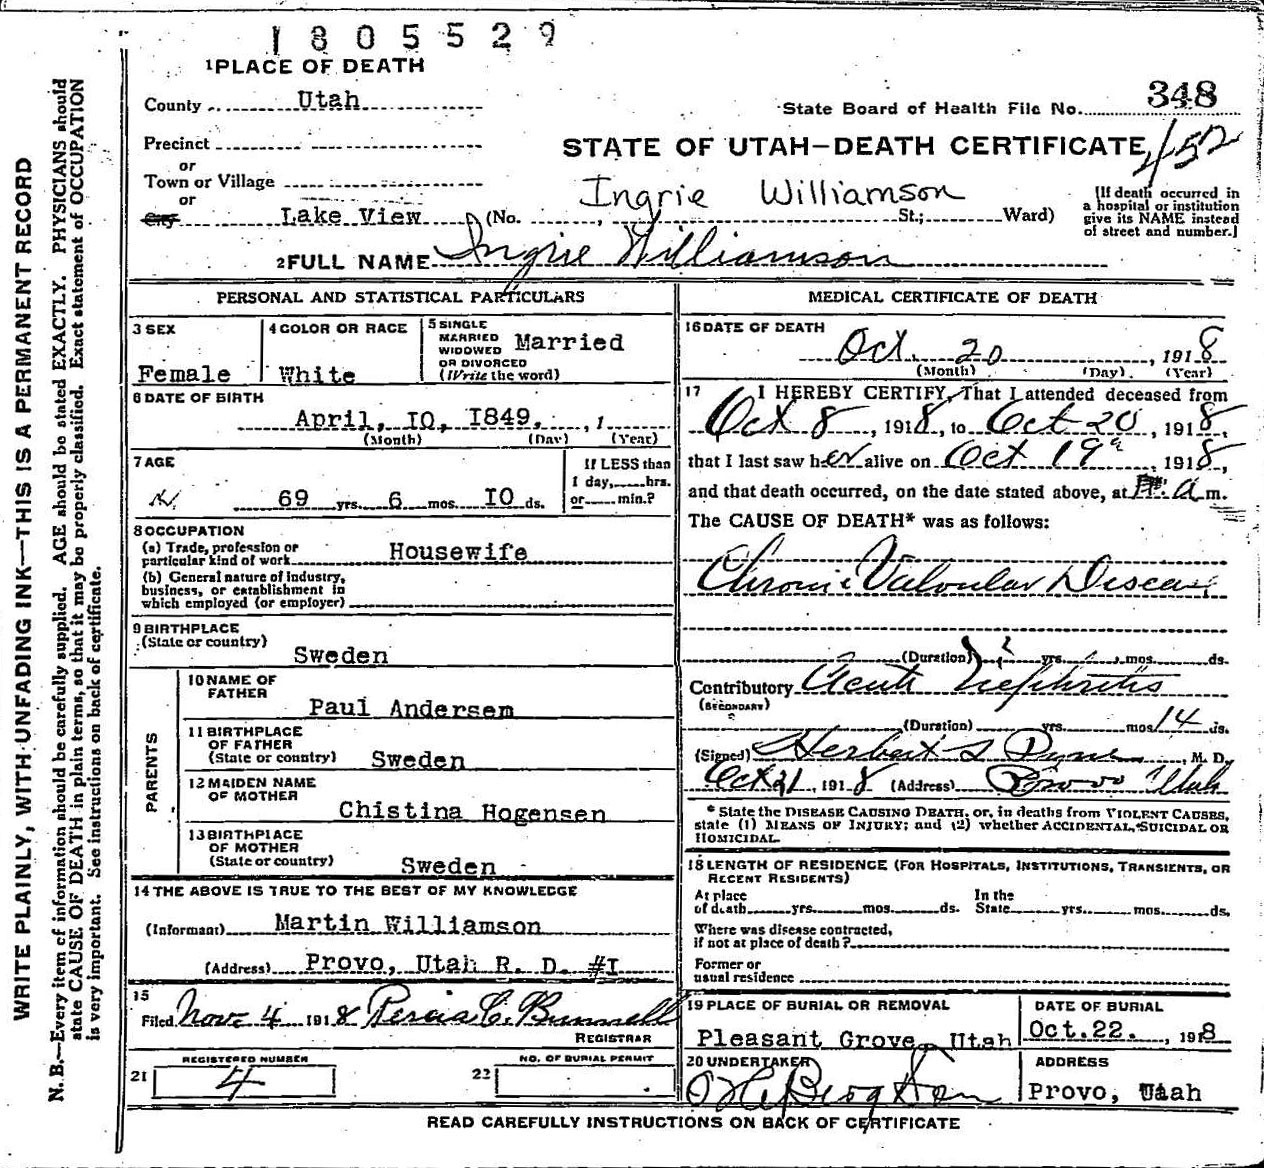 1805529
1 PLACE OF DEATH
County Utah
State Board of Health File No. 348
Precinct
STATE OF UTAH—DEATH CERTIFICATE 452
or
Town or Village
or
City Lake View (No. , St.; Ward)
Ingrie Williamson
[If death occurred in
a hospital or institution
give its NAME instead
of street and number.]
2 FULL NAME Ingrie Williamson
PERSONAL AND STATISTICAL PARTICULARS
3 SEX
Female
4 COLOR OR RACE
White
5 SINGLE
MARRIED
WIDOWED
OR DIVORCED
(Write the word)
Married
6 DATE OF BIRTH
April, IO, I849. , 1
(Month) (Day) (Year)
7 AGE
69 yrs. 6 mos. IO ds.
If LESS than
1 day, hrs.
or min.?
8 OCCUPATION
(a) Trade, profession or
particular kind of work Housewife
(b) General nature of industry,
business, or establishment in
which employed (or employer)
9 BIRTHPLACE
(State or country)
Sweden
PARENTS
10 NAME OF
FATHER
Paul Andersem
11 BIRTHPLACE
OF FATHER
(State or country) Sweden
12 MAIDEN NAME
OF MOTHER
Chistina Hogensen
13 BIRTHPLACE
OF MOTHER
(State or country)
Sweden
14 THE ABOVE IS TRUE TO THE BEST OF MY KNOWLEDGE
(Informant) Martin Williamson
(Address) Provo, Utah R. D. #I
15
Filed Nov. 4 1918 Percis C. Bunnell
REGISTRAR
REGISTERED NUMBER
21 4
NO. OF BURIAL PERMIT
22
MEDICAL CERTIFICATE OF DEATH
16 DATE OF DEATH
Oct. 20 , 1918
(Month) (Day) (Year)
17 I HEREBY CERTIFY, That I attended deceased from
Oct 8 , 1918, to Oct 20 , 1918,
that I last saw her alive on Oct 19 , 1918,
and that death occurred, on the date stated above, at a m.
The CAUSE OF DEATH* was as follows:
Chronic Valvular Disease
(Duration) yrs. mos. ds.
Contributory Acute Nephritis
(SECONDARY)
(Duration) yrs. mos. 14 ds.
(Signed) Herbert S Pyne , M. D.
Oct 21 , 1918 (Address) Provo Utah
* State the DISEASE CAUSING DEATH, or, in deaths from VIOLENT CAUSES,
state (1) MEANS OF INJURY; and (2) whether ACCIDENTAL, SUICIDAL OR
HOMICIDAL.
18 LENGTH OF RESIDENCE (FOR HOSPITALS, INSTITUTIONS, TRANSIENTS, OR
RECENT RESIDENTS)
At place
of death yrs. mos. ds.
In the
State yrs. mos. ds.
Where was disease contracted,
if not at place of death?
Former or
usual residence
19 PLACE OF BURIAL OR REMOVAL
Pleasant Grove, Utah
DATE OF BURIAL
Oct.22. , 1918
20 UNDERTAKER
ADDRESS
Provo, Utah
READ CAREFULLY INSTRUCTIONS ON BACK OF CERTIFICATE
WRITE PLAINLY, WITH UNFADING INK—THIS IS A PERMANENT RECORD
N. B.—Every item of information should be carefully supplied. AGE should be stated EXACTLY. PHYSICIANS should
state CAUSE OF DEATH in plain terms, so that it may be properly classified. Exact statement of OCCUPATION
is very important. See instructions on back of certificate.